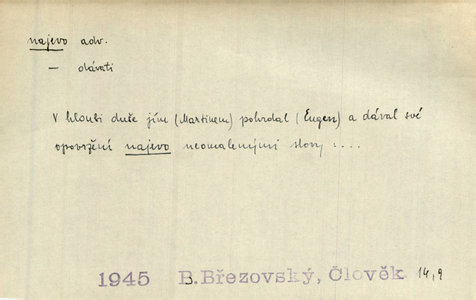 najevo adv.
— dávati
V hloubi duše jím (Martinem) pohrdal (Eugen) a dával své
opovržení najevo neomalenými slovy ....
1945 B.Březovský, Člověk 14,9